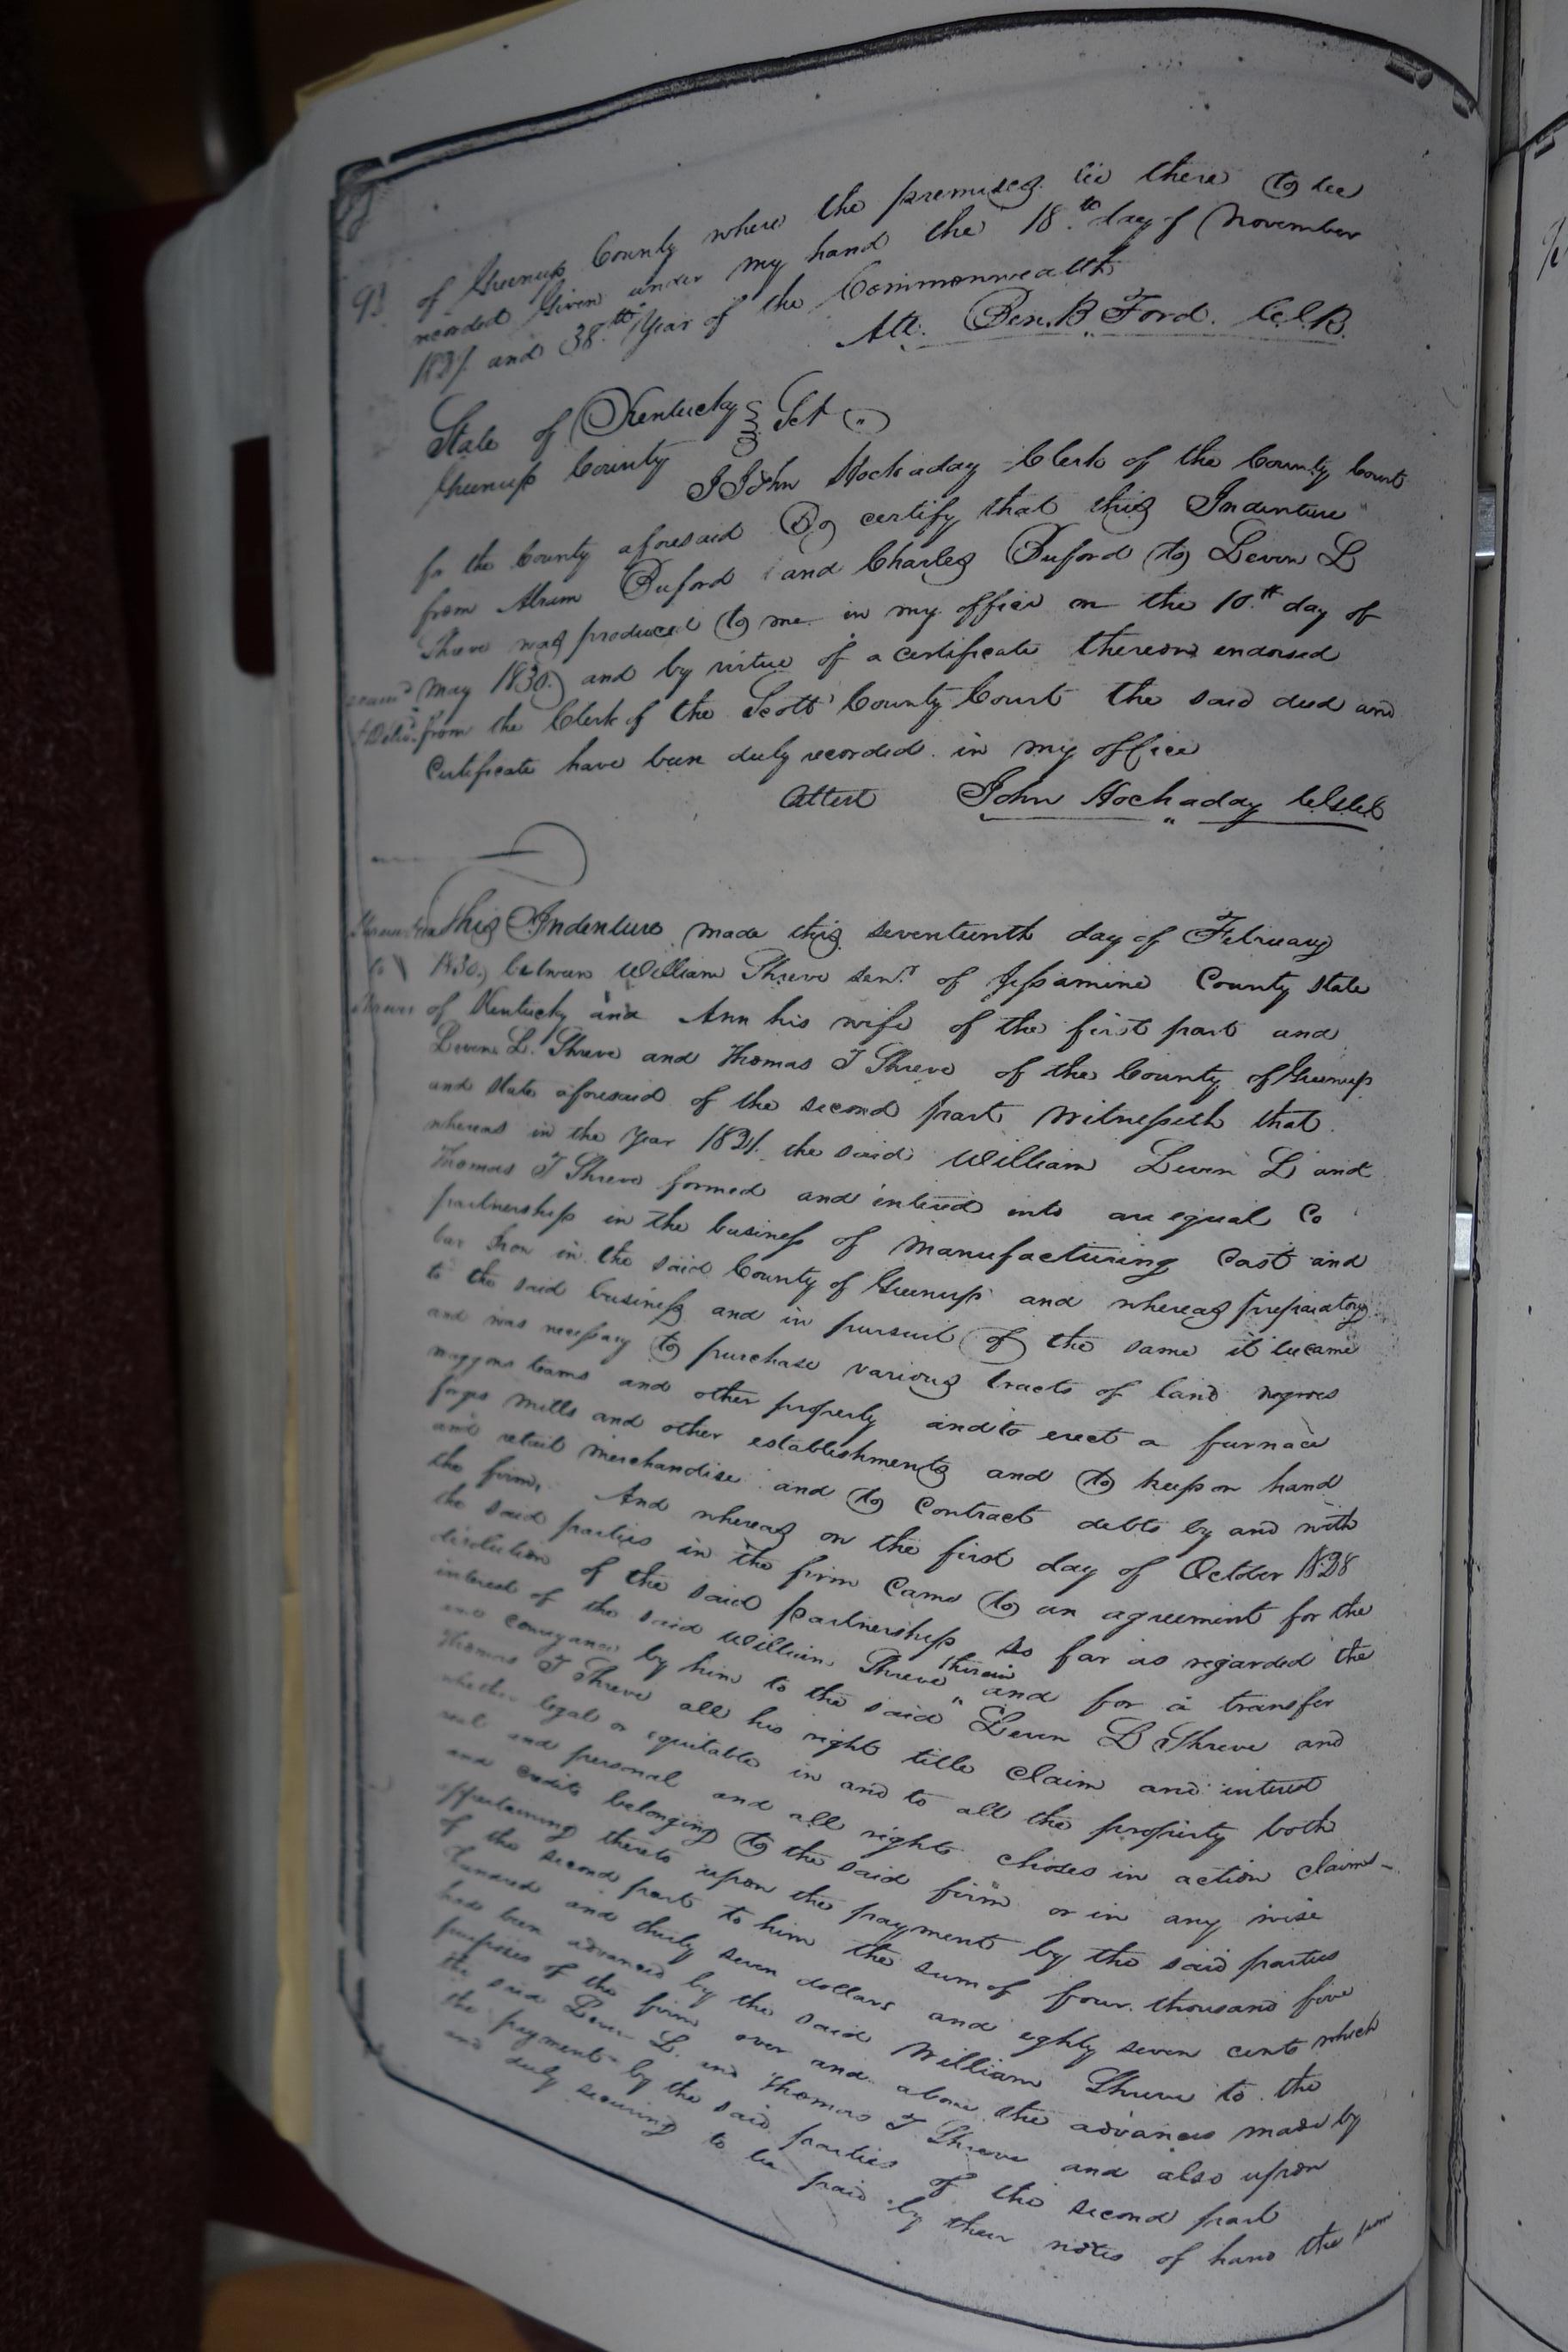 93 of Greenup County where the premises lie there to be
recorded Given under my hand the 18th day of November
and 38th Year of the Commonwealth
Att. Ben. B Ford. C.S.B.
State of Kentucky Sct
Greenup County
I John Hockaday Clerk of the County Court
for the County aforesaid Do certify that this Indenture
from Abram Buford and Charles Buford to Levin L
Shreve was produced to me in my office on the 10th day of
May 1830 and by virtue of a certificate thereon endorsed
from the Clerk of the Scott County Court the said deed and
Certificate have been duly recorded in my office
Attest John Hockaday
This Indenture made this seventeenth day of February
to 1830, between William Shreve senr of Jessamine County State
Shreve of Kentucky and Ann his wife of the first part and
Levin L. Shreve and Thomas T Shreve of the County of Greenup
and state aforesaid of the second part Witnesseth that
whereas in the Year 1821 the said William Levin L and
Thomas T Shreve formed and intered into an equal Co
partnership in the business of manufacturing Cast and
bar Iron in the said County of Greenup and whereas preparatory
to the said business and in pursuit of the same it became
and was necessary to purchase various tracts of land negroes
waggons teams and other property and to erect a furnace
forges mills and other establishments and to keep on hand
and retail merchandise and to Contract debts by and with
the firm. And whereas on the first day of October 1828
the said parties in the firm came to an agreement for the
disolution of the said partnership so far as regarded the
interest of the said William Shreve therein and for a transfer
and conveyance by him to the said Levin L Shreve and
Thomas T Shreve all his right title claim and interest
whether legal or equitable in and to all the property both
real and personal and all rights choses in action claims
and credits belonging to the said firm or in any wise
appertaining thereto upon the payment by the said parties
of the second part to him the sum of four thousand five
hundred and thirty seven dollars and eighty seven cents which
had been advanced by the said William Shreve to the
purposes of the firm over and above the advances made by
the said Levin L. and Thomas T Shreve and also upon
the payment by the said parties of the second part
and duly securing to be paid by their notes of hand the sum